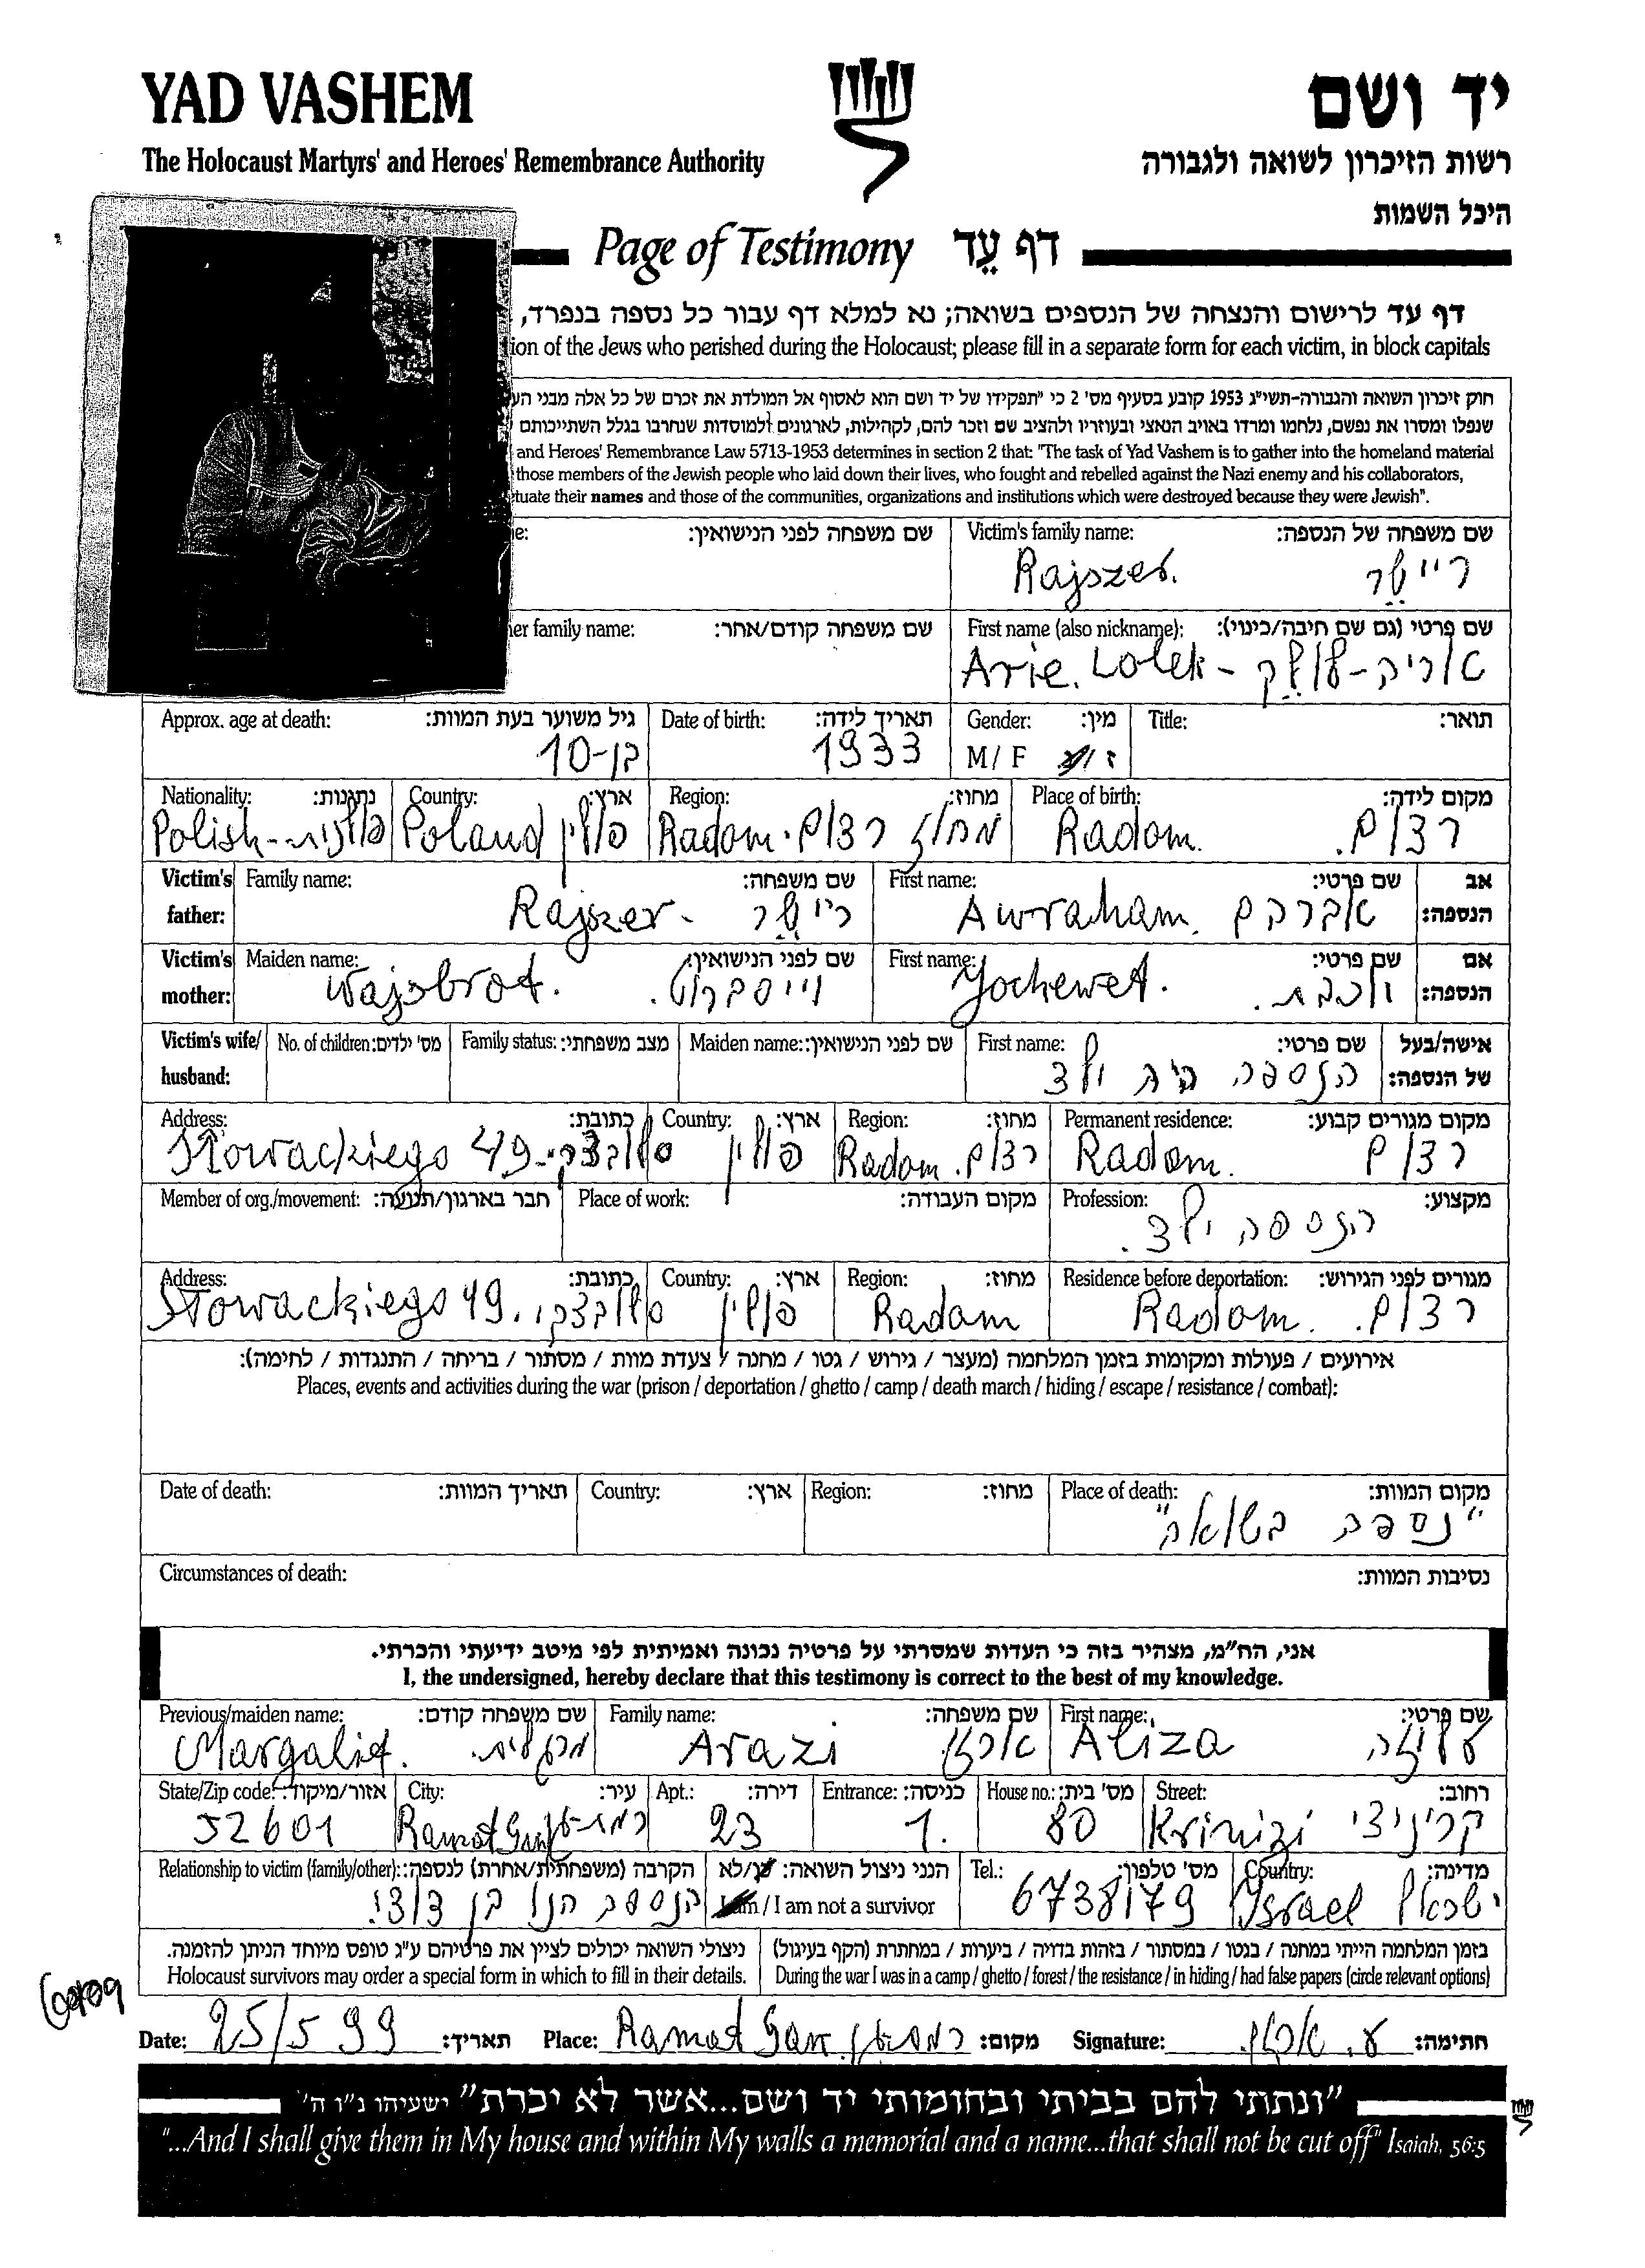 YAD VASHEM
יד ושם
The Holocaust Martyrs' and Heroes' Remembrance Authority
רשות הזיכרון לשואה ולגבורה
היכל השמות
Page of Testimony דף עֵד
דף עד לרישום והנצחה של הנספים בשואה; נא למלא דף עבור כל נספה בנפרד,
ion of the Jews who perished during the Holocaust; please fill in a separate form for each victim, in block capitals
חוק זיכרון השואה והגבורה-תשי״ג 1953 קובע בסעיף מס' 2 כי "תפקידו של יד ושם הוא לאסוף אל המולדת את זכרם של כל אלה מבני הע
שנפלו ומסרו את נפשם, נלחמו ומרדו באויב הנאצי ובעוזריו ולהציב שם וזכר להם, לקהילות, לארגונים ולמוסדות שנחרבו בגלל השתייכותם
and Heroes' Remembrance Law 5713-1953 determines in section 2 that: "The task of Yad Vashem is to gather into the homeland material
those members of the Jewish people who laid down their lives, who fought and rebelled against the Nazi enemy and his collaborators,
tuate their names and those of the communities, organizations and institutions which were destroyed because they were Jewish".
e: שם משפחה לפני הנישואין: Victim's family name: שם משפחה של הנספה:
Rajszer. ריישר
er family name: שם משפחה קודם/אחר: First name (also nickname): שם פרטי (גם שם חיבה/כינוי):
Arie. Lolek - אריה-לולק
Approx. age at death: גיל משוער בעת המוות: Date of birth: תאריך לידה: Gender: מין: Title: תואר:
בן-10 1933 M/ F ז/נ
Nationality: נתינות: Country: ארץ: Region: מחוז: Place of birth: מקום לידה:
Polish-פולנית Poland פולין Radom. מחוז רדום Radom. רדום.
Victim's father: Family name: שם משפחה: First name: שם פרטי: אב הנספה:
Rajszer - רישר Awraham. אברהם
Victim's mother: Maiden name: שם לפני הנישואין: First name: שם פרטי: אם הנספה:
Wajsbrot. וייסברוט. Jochewet. יוכבת.
Victim's wife/ husband: No. of children: מס' ילדים: Family status: מצב משפחתי: Maiden name: שם לפני הנישואין: First name: שם פרטי: אישה/בעל של הנספה:
הנספה היה ילד
Address: כתובת: Country: ארץ: Region: מחוז: Permanent residence: מקום מגורים קבוע:
Słowackiego 49. סלובצקי פולין Radom. רדום Radom. רדום
Member of org./movement: חבר בארגון/תנועה: Place of work: מקום העבודה: Profession: מקצוע:
הנספה ילד.
Address: כתובת: Country: ארץ: Region: מחוז: Residence before deportation: מגורים לפני הגירוש:
Słowackiego 49. סלובצקי פולין Radam Radom. רדום.
אירועים / פעולות ומקומות בזמן המלחמה (מעצר / גירוש / גטו / מחנה / צעדת מוות / מסתור / בריחה / התנגדות / לחימה):
Places, events and activities during the war (prison / deportation / ghetto / camp / death march / hiding / escape / resistance / combat):
Date of death: תאריך המוות: Country: ארץ: Region: מחוז: Place of death: מקום המוות:
"נספה בשואה"
Circumstances of death: נסיבות המוות:
אני, הח״מ, מצהיר בזה כי העדות שמסרתי על פרטיה נכונה ואמיתית לפי מיטב ידיעתי והכרתי.
I, the undersigned, hereby declare that this testimony is correct to the best of my knowledge.
Previous/maiden name: שם משפחה קודם: Family name: שם משפחה: First name: שם פרטי:
Margalit. מרגלית. Arazi ארזי Aliza עליזה
State/Zip code: אזור/מיקוד: City: עיר: Apt.: דירה: Entrance: כניסה: House no.: מס' בית: Street: רחוב:
52601 Ramat Gan רמת-גן 23 1. 80 Krinizi קריניצי
Relationship to victim (family/other): הקרבה (משפחתית/אחרת) לנספה: הנני ניצול השואה: כן/לא Tel.: מס' טלפון: Country: מדינה:
הנספה הנו בן דודי. I am / I am not a survivor 6738179 Israel ישראל
ניצולי השואה יכולים לציין את פרטיהם ע״ג טופס מיוחד הניתן להזמנה. בזמן המלחמה הייתי במחנה / בגטו / במסתור / בזהות בדויה / ביערות / במחתרת (הקף בעיגול)
Holocaust survivors may order a special form in which to fill in their details. During the war I was in a camp / ghetto / forest / the resistance / in hiding / had false papers (circle relevant options)
Date: 25/5 99 תאריך: Place: Ramat Gan. רמת-גן מקום: Signature: ע. ארזי. חתימה:
"ונתתי להם בביתי ובחומותי יד ושם...אשר לא יכרת" ישעיהו נ״ו ה'
"...And I shall give them in My house and within My walls a memorial and a name...that shall not be cut off" Isaiah, 56:5